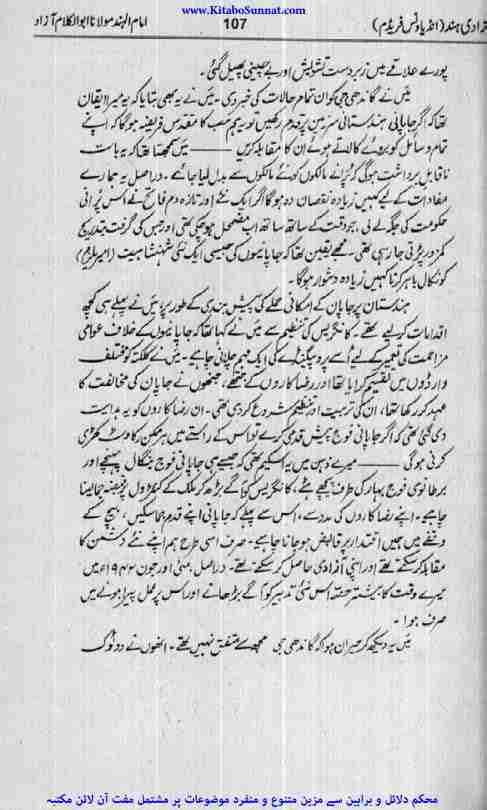 www.KitaboSunnat.com
آزادی ہند (انڈیا ونس فریڈم) 107 امام الہند مولانا ابوالکلام آزاد
پورے علاقے میں زبردست تشویش اور بے چینی پھیل گئی۔
میں نے گاندھی جی کو ان تمام حالات کی خبر دی۔ میں نے یہ بھی بتایا کہ یہ میرا ایقان
تھا کہ اگر جاپانی ہندستانی سرزمین پر قدم رکھیں تو یہ ہم سب کا مقدس فریضہ ہوگا کہ اپنے
تمام وسائل کو بروئے کار لاتے ہوئے ان کا مقابلہ کریں ——— میں سمجھتا تھا کہ یہ بات
ناقابلِ برداشت ہوگی کہ پرانے مالکوں کو نئے مالکوں سے بدل لیا جائے۔ دراصل یہ ہمارے
مفادات کے لیے کہیں زیادہ نقصان دہ ہوگا اگر ایک نئے اور تازہ دم فاتح نے اس پرانی
حکومت کی جگہ لے لی، جو وقت کے ساتھ ساتھ اب مضمحل ہو چکی تھی اور جس کی گرفت بتدریج
کمزور پڑتی جا رہی تھی۔ مجھے یقین تھا کہ جاپانیوں کی جیسی ایک نئی شہنشاہیت (امپیریلزم)
کو نکال باہر کرنا کہیں زیادہ دشوار ہوگا۔
ہندستان پر جاپان کے امکانی حملے کی پیش بندی کے طور پر، میں نے پہلے سے ہی کچھ
اقدامات کر لیے تھے۔ کانگریس کی تنظیم سے میں نے کہا تھا کہ جاپانیوں کے خلاف عوامی
مزاحمت کی تعمیر کے لیے اسے پروپیگنڈے کی ایک مہم چلانی چاہیے۔ میں نے کلکتہ کو مختلف
وارڈوں میں تقسیم کرایا تھا اور رضا کاروں کے جتھے، جنھوں نے جاپان کی مخالفت کا
عہد کر رکھا تھا، ان کی تربیت اور تنظیم شروع کر دی تھی۔ ان رضا کاروں کو یہ ہدایت
دی گئی تھی کہ اگر جاپانی فوج پیش قدمی کرے تو اس کے راستے میں ہر ممکن رکاوٹ کھڑی
کرنی ہوگی ——— میرے ذہن میں یہ اسکیم تھی کہ جیسے ہی جاپانی فوج بنگال پہنچے اور
برطانوی فوج بہار کی طرف پیچھے ہٹے، کانگریس کو آگے بڑھ کر ملک کے کنٹرول پر قبضہ جما لینا
چاہیے۔ اپنے رضا کاروں کی مدد سے، اس سے پہلے کہ جاپانی اپنے قدم جما سکیں، بیچ کے
وقفے میں ہمیں اقتدار پر قابض ہو جانا چاہیے۔ صرف اسی طرح ہم اپنے نئے دشمن کا
مقابلہ کر سکتے تھے اور اپنی آزادی حاصل کر سکتے تھے۔ دراصل، مئی اور جون ۱۹۴۲ء میں
میرے وقت کا بیشتر حصہ اس نئی تدبیر کو آگے بڑھانے اور اس پر عمل پیرا ہونے میں
صرف ہوا۔
میں یہ دیکھ کر حیران ہوا کہ گاندھی جی مجھ سے متفق نہیں تھے۔ انھوں نے دو ٹوک
محکم دلائل و براہین سے مزین متنوع و منفرد موضوعات پر مشتمل مفت آن لائن مکتبہ